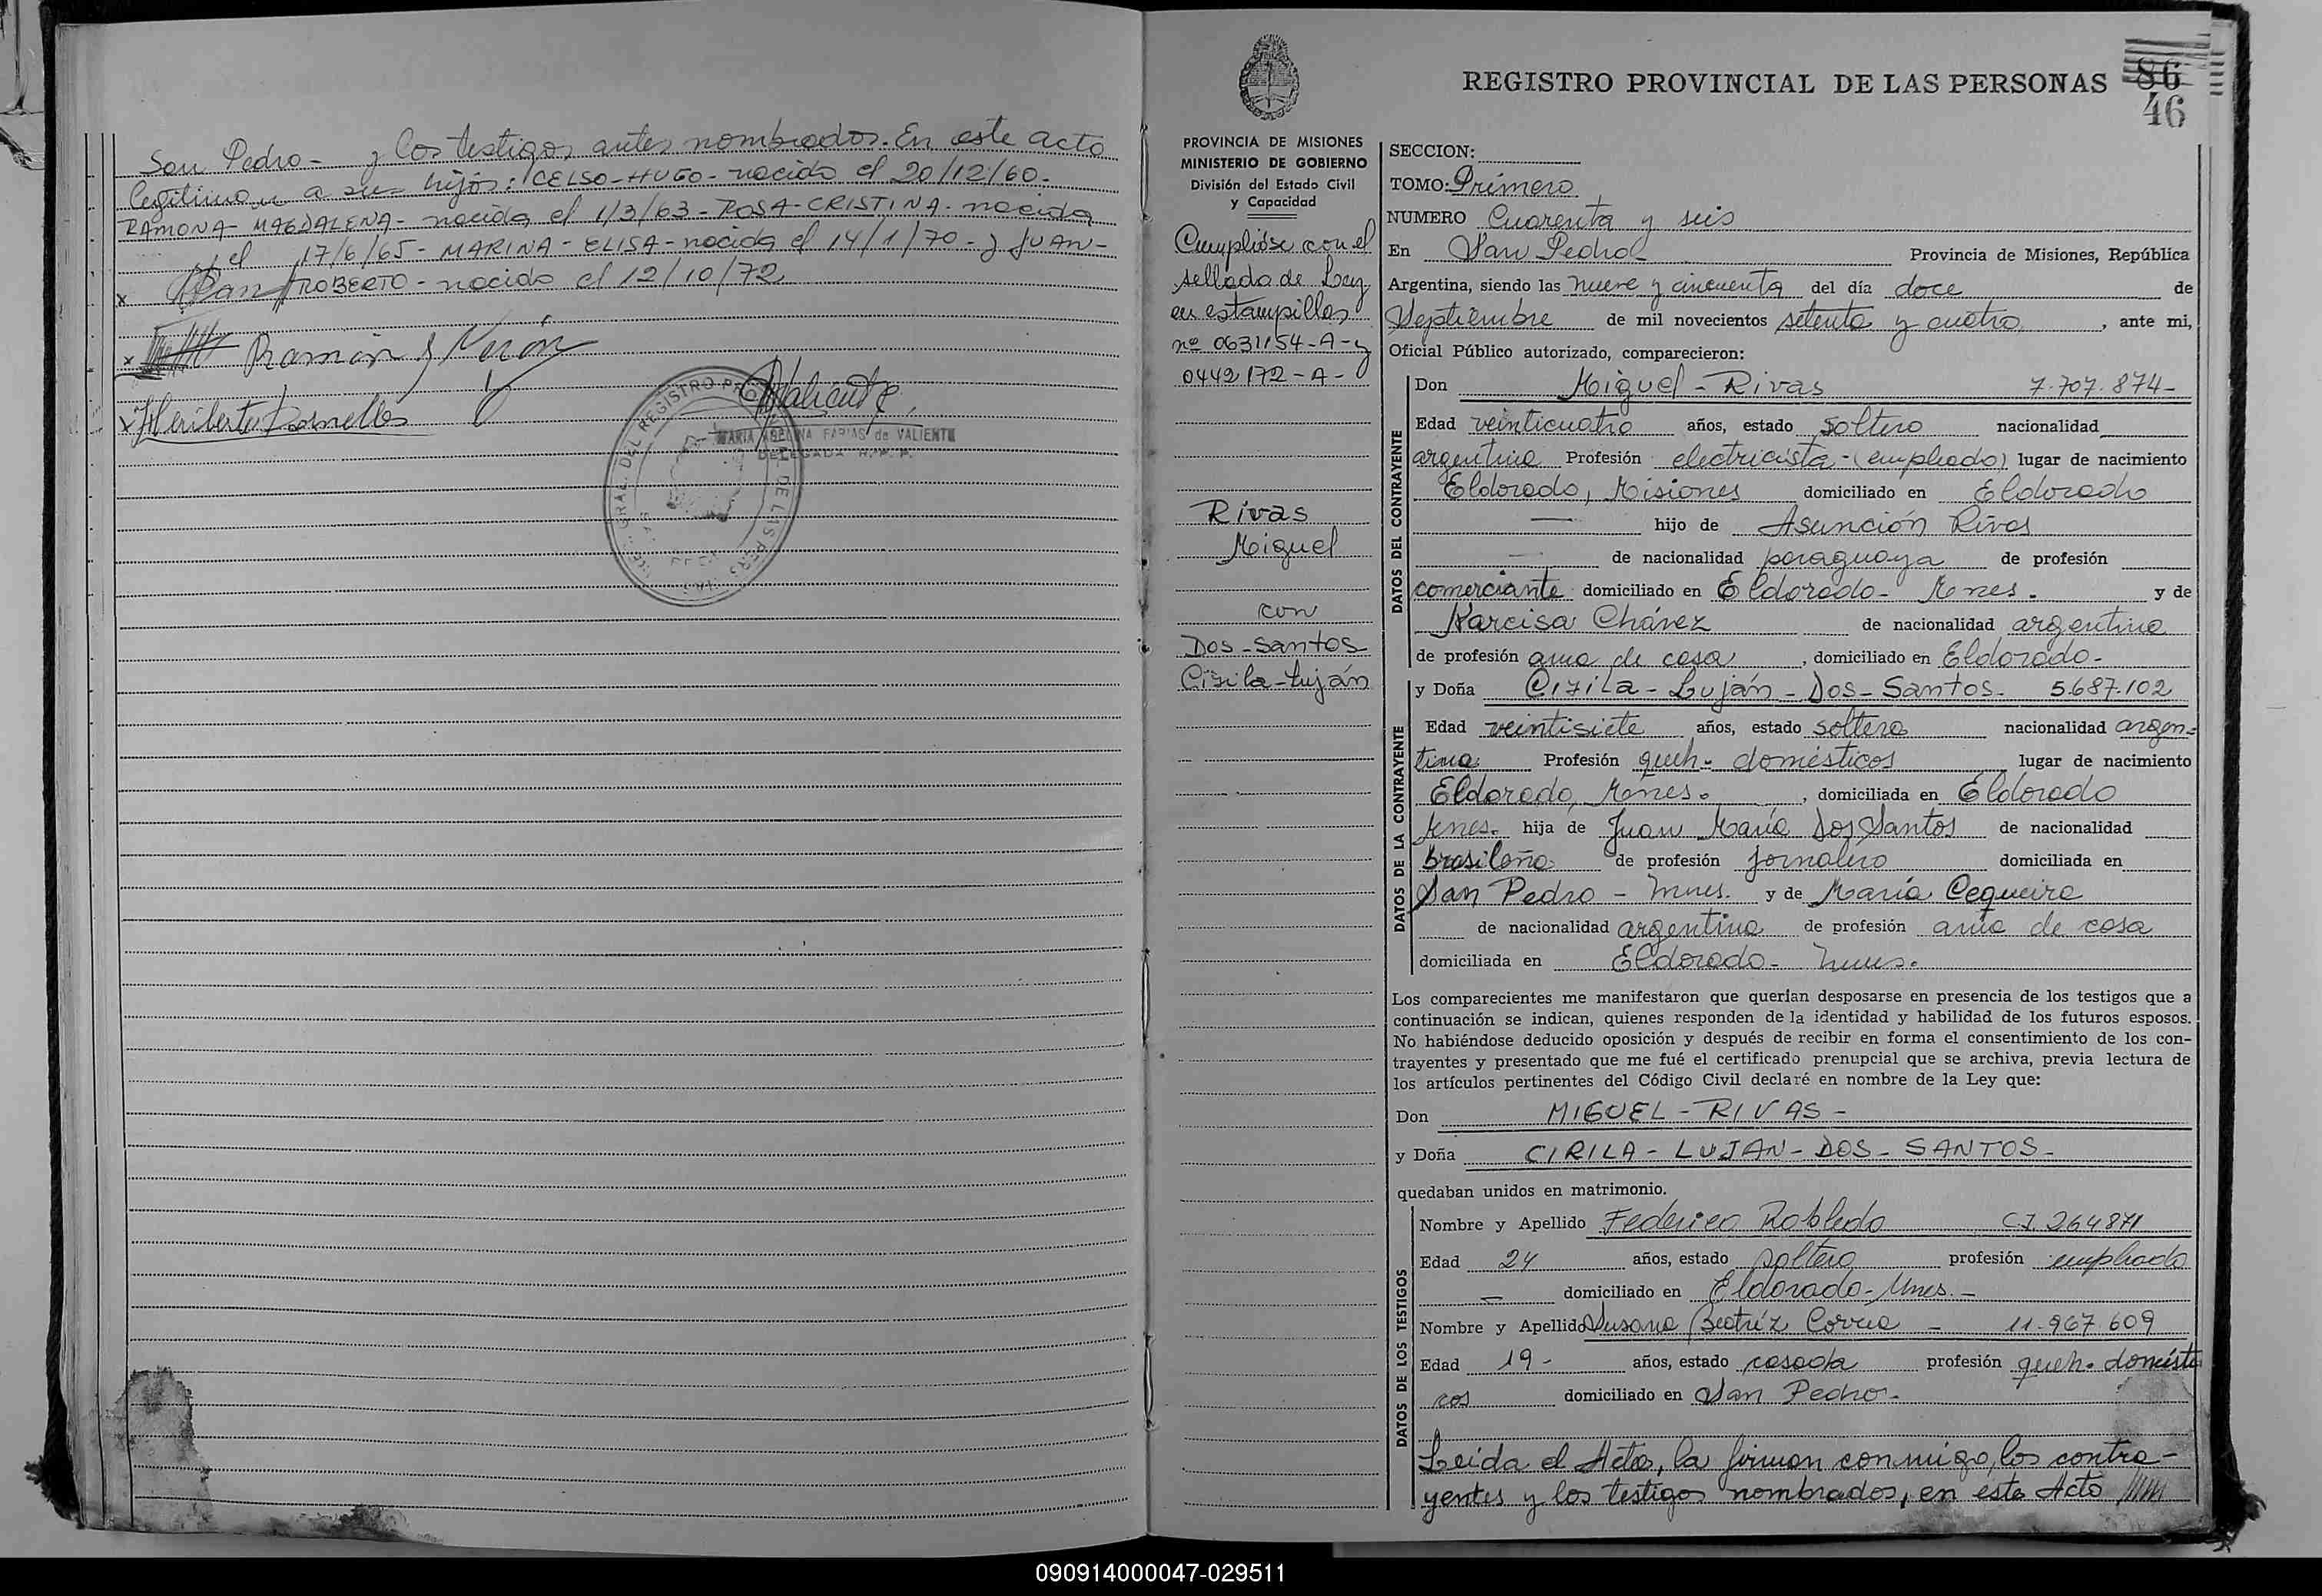 San Pedro - y los testigos antes nombrados. En este acto
legitiman a sus hijos: CELSO-HUGO- nacido el 20/12/60-
RAMONA- MAGDALENA- nacida el 1/3/63- ROSA-CRISTINA- nacida
el 17/6/65- MARINA- ELISA- nacida el 14/1/70- y JUAN-
ROBERTO- nacido el 12/10/72
x
x Ramón
x Heriberto Dornelles
Valiente
MARIA FARIAS de VALIENTE
DELEGADA R.P.P.
DEL REGISTRO DE LAS PERS
REGISTRO PROVINCIAL DE LAS PERSONAS
86
46
PROVINCIA DE MISIONES
MINISTERIO DE GOBIERNO
División del Estado Civil
y Capacidad
Cumplióse con el
sellado de Ley
en estampillas
nº 0631154-A-y
0442172-A-
Rivas
Miguel
con
Dos-Santos
Cirila-Luján
SECCION:
TOMO: Primero
NUMERO Cuarenta y seis
En San Pedro Provincia de Misiones, República
Argentina, siendo las nueve y cincuenta del día doce de
Septiembre de mil novecientos setenta y cuatro, ante mi,
Oficial Público autorizado, comparecieron:
DATOS DEL CONTRAYENTE
Don Miguel - Rivas 7.707.874-
Edad veinticuatro años, estado soltero nacionalidad
argentina Profesión electricista-(empleado) lugar de nacimiento
Eldorado, Misiones domiciliado en Eldorado
— hijo de Asunción Rivas
— de nacionalidad paraguaya de profesión
comerciante domiciliado en Eldorado- Mnes. y de
Narcisa Chávez de nacionalidad argentina
de profesión ama de casa, domiciliado en Eldorado-
DATOS DE LA CONTRAYENTE
y Doña Cirila - Luján - Dos - Santos- 5.687.102
Edad veintisiete años, estado soltera nacionalidad argen=
tina Profesión queh- domésticos lugar de nacimiento
Eldorado, Mnes., domiciliada en Eldorado
Mnes. hija de Juan María Dos Santos de nacionalidad
brasileña de profesión jornalero domiciliada en
San Pedro - Mnes. y de María Cequeira
de nacionalidad argentina de profesión ama de casa
domiciliada en Eldorado- Mnes.
Los comparecientes me manifestaron que querían desposarse en presencia de los testigos que a
continuación se indican, quienes responden de la identidad y habilidad de los futuros esposos.
No habiéndose deducido oposición y después de recibir en forma el consentimiento de los con-
trayentes y presentado que me fué el certificado prenupcial que se archiva, previa lectura de
los artículos pertinentes del Código Civil declaré en nombre de la Ley que:
Don MIGUEL - RIVAS -
y Doña CIRILA - LUJAN - DOS - SANTOS-
quedaban unidos en matrimonio.
DATOS DE LOS TESTIGOS
Nombre y Apellido Federico Robledo CI. 264871
Edad 24 años, estado soltero profesión empleado
— domiciliado en Eldorado-Mnes.-
Nombre y Apellido Susana Beatríz Correa - 11.967.609
Edad 19- años, estado casada profesión queh. domésti
cos domiciliado en San Pedro-
Leida el Acta, la firman conmigo, los contra-
yentes y los testigos nombrados, en este Acto
090914000047-029511